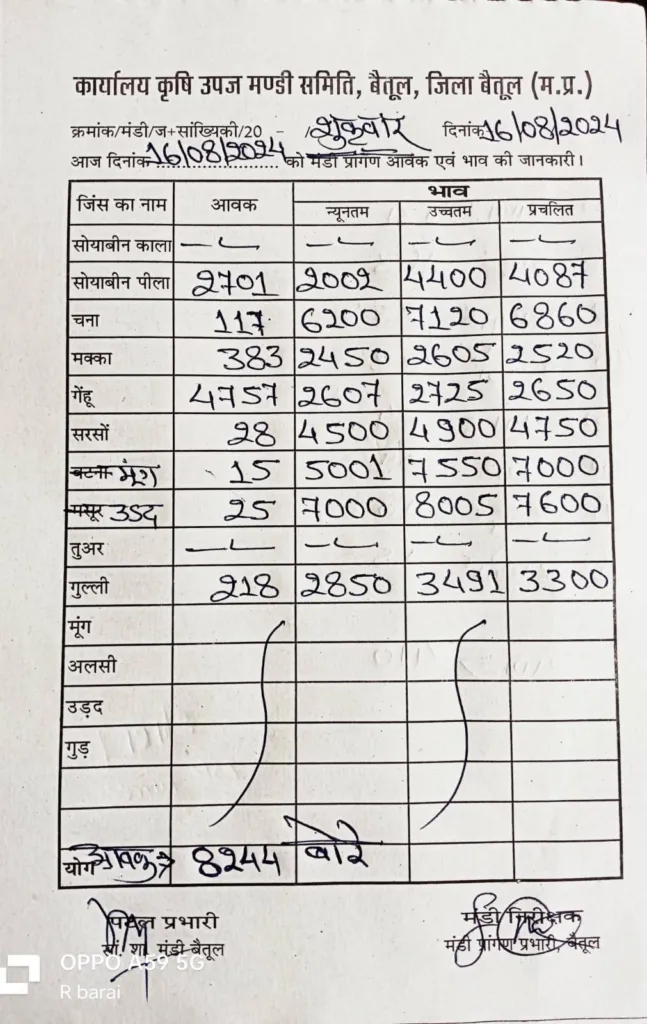 कार्यालय कृषि उपज मण्डी समिति, बैतूल, जिला बैतूल (म.प्र.)
क्रमांक/मंडी/ज+सांख्यिकी/20 - /शुक्रवार दिनांक 16/08/2024
आज दिनांक 16/08/2024 को मंडी प्रांगण आवक एवं भाव की जानकारी।
जिंस का नाम आवक भाव
न्यूनतम उच्चतम प्रचलित
सोयाबीन काला — — — —
सोयाबीन पीला 2701 2002 4400 4087
चना 117 6200 7120 6860
मक्का 383 2450 2605 2520
गेंहू 4757 2607 2725 2650
सरसों 28 4500 4900 4750
बटना मूंग 15 5001 7550 7000
मसूर उडद 25 7000 8005 7600
तुअर — — — —
गुल्ली 218 2850 3491 3300
मूंग
अलसी
उड़द
गुड़
योग आवक → 8244 बोरे
प्रभारी मंडी निरीक्षक
सां. शा. मंडी बैतूल मंडी प्रांगण प्रभारी, बैतूल
OPPO A59 5G
R barai